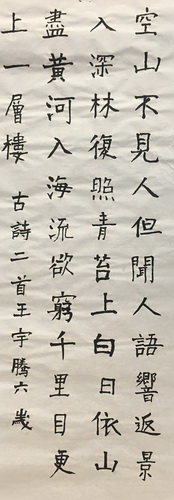 空山不見人但聞人語響返景
入深林復照青苔上白日依山
盡黃河入海流欲窮千里目更
上一層樓 古詩二首王宇騰六歲